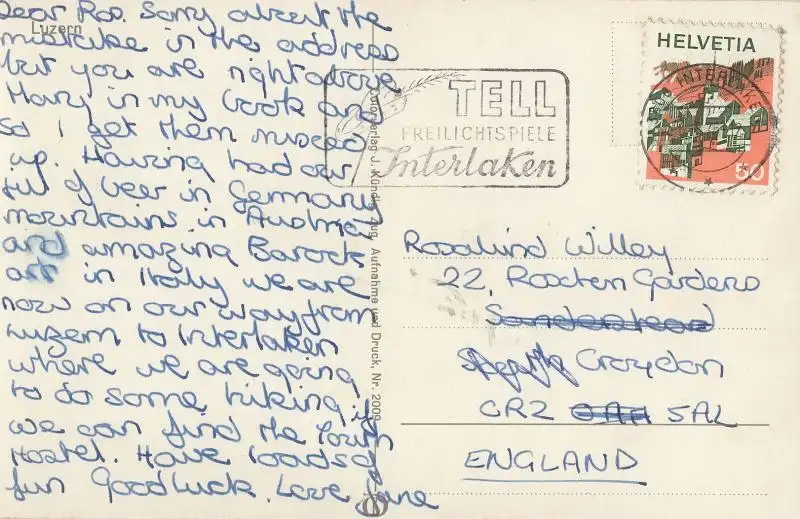 Luzern
Dear Ros. Sorry about the
mistake in the address
but you are right above
Mary in my book and
so I get them mixed
up. Having had our
fill of beer in Germany
mountains in Austria
and amazing Barock
art in Italy we are
now on our way from
Luzern to Interlaken
where we are going
to do some hiking, if
we can find the Youth
Hostel. Have loads of
fun Goodluck. Love Jane
Verlag J. Kündig, Zug, Aufnahme und Druck, Nr. 2009
TELL
FREILICHTSPIELE
Interlaken
HELVETIA
INTERLAKEN
50
Rosalind Willey
22, Gardens
Sanderstead
Croydon
CR2 5AL
ENGLAND